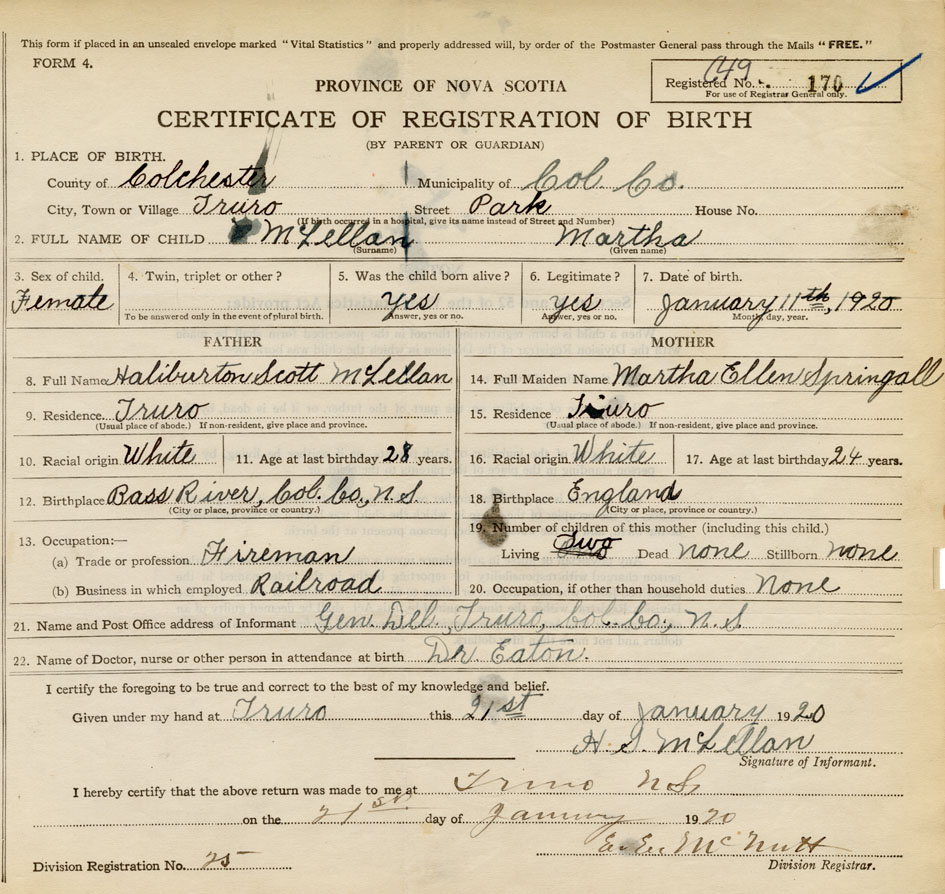 This form if placed in an unsealed envelope marked "Vital Statistics" and properly addressed will, by order of the Postmaster General pass through the Mails "FREE."
FORM 4.
149
Registered No. 170
For use of Registrar General only.
PROVINCE OF NOVA SCOTIA
CERTIFICATE OF REGISTRATION OF BIRTH
(BY PARENT OR GUARDIAN)
1. PLACE OF BIRTH.
County of Colchester Municipality of Col. Co.
City, Town or Village Truro Street Park House No.
(If birth occurred in a hospital, give its name instead of Street and Number)
2. FULL NAME OF CHILD McLellan Martha
(Surname) (Given name)
3. Sex of child. 4. Twin, triplet or other? 5. Was the child born alive? 6. Legitimate? 7. Date of birth.
Female yes yes January 11th, 1920
To be answered only in the event of plural birth. Answer, yes or no. Answer, yes or no. Month, day, year.
FATHER MOTHER
8. Full Name Haliburton Scott McLellan 14. Full Maiden Name Martha Ellen Springall
9. Residence. Truro 15. Residence Truro
(Usual place of abode.) If non-resident, give place and province. (Usual place of abode.) If non-resident, give place and province.
10. Racial origin White 11. Age at last birthday 28 years. 16. Racial origin White 17. Age at last birthday 24 years.
12. Birthplace Bass River, Col. Co., N.S. 18. Birthplace England
(City or place, province or country.) (City or place, province or country.)
19. Number of children of this mother (including this child.)
13. Occupation:—
(a) Trade or profession Fireman Living Two Dead none Stillborn none
(b) Business in which employed Railroad 20. Occupation, if other than household duties None
21. Name and Post Office address of Informant Gen. Del., Truro, Col. Co., N.S.
22. Name of Doctor, nurse or other person in attendance at birth Dr Eaton.
I certify the foregoing to be true and correct to the best of my knowledge and belief.
Given under my hand at Truro this 21st day of January 1920
H. S. McLellan
Signature of Informant.
I hereby certify that the above return was made to me at Truro N.S.
on the 21st day of January 1920
McNutt
Division Registration No. 25 Division Registrar.